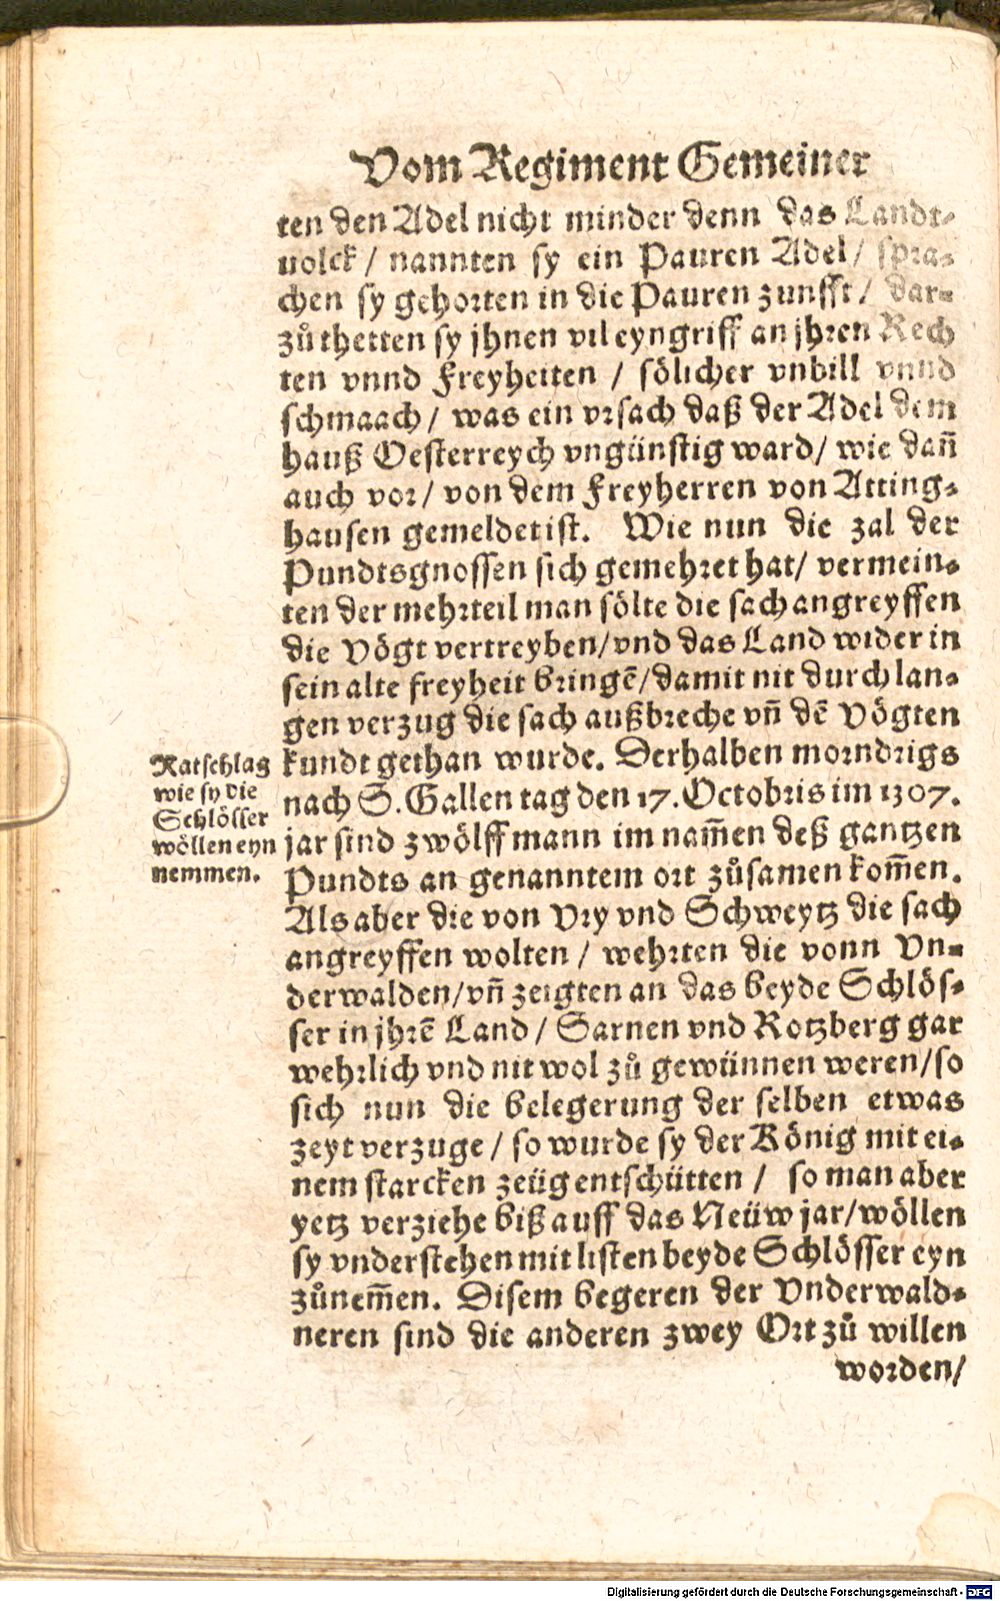 Vom Regiment Gemeiner
ten den Adel nicht minder denn das Landt⸗
uolck / nannten sy ein Pauren Adel / spra⸗
chen sy gehorten in die Pauren zunfft / dar⸗
zů thetten sy jhnen vil eyngriff an jhren Rech
ten vnnd Freyheiten / sölicher vnbill vnnd
schmaach / was ein vrsach daß der Adel dem
hauß Oesterreych vngünstig ward / wie dañ
auch vor / von dem Freyherren von Atting⸗
hausen gemeldet ist. Wie nun die zal der
Pundtsgnossen sich gemehret hat / vermein⸗
ten der mehrteil man sölte die sach angreyffen
die Vögt vertreyben / vnd das Land wider in
sein alte freyheit bringẽ / damit nit durch lan⸗
gen verzug die sach außbreche vñ dẽ Vögten
kundt gethan wurde. Derhalben morndrigs
nach S. Gallen tag den 17. Octobris im 1307.
jar sind zwölff mann im nam̃en deß gantzen
Pundts an genanntem ort zůsamen kom̃en.
Als aber die von Vry vnd Schweytz die sach
angreyffen wolten / wehrten die vonn Vn⸗
derwalden / vñ zeigten an das beyde Schlös⸗
ser in jhrẽ Land / Sarnen vnd Rotzberg gar
wehrlich vnd nit wol zů gewünnen weren / so
sich nun die belegerung der selben etwas
zeyt verzuge / so wurde sy der König mit ei⸗
nem starcken zeüg entschütten / so man aber
yetz verziehe biß auff das Neüw jar / wöllen
sy vnderstehen mit listen beyde Schlösser eyn
zůnem̃en. Disem begeren der Vnderwald⸗
neren sind die anderen zwey Ort zů willen
worden /
Ratschlag
wie sy die
Schlösser
wöllen eyn
nemmen.
Digitalisierung gefördert durch die Deutsche Forschungsgemeinschaft - DFG